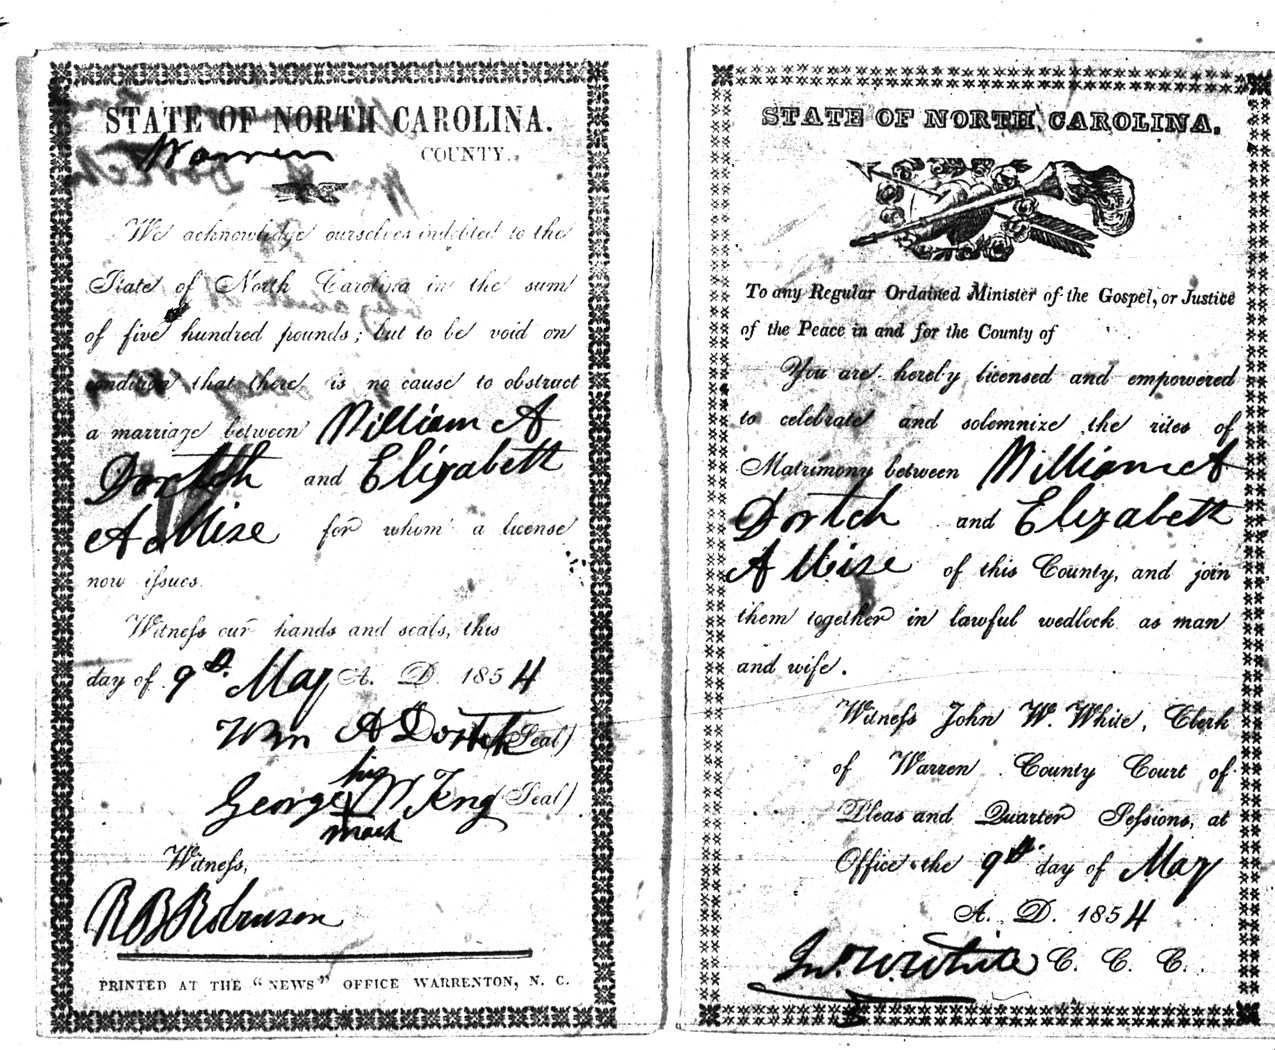 STATE OF NORTH CAROLINA.
Warren COUNTY.
We acknowledge ourselves indebted to the
State of North Carolina in the sum
of five hundred pounds; but to be void on
condition that there is no cause to obstruct
a marriage between William A
Dortch and Elizabeth
A Mise for whom a license
now issues.
Witness our hands and seals, this
day of 9th. May A. D. 1854
Wm A Dortch (Seal)
his
George W King (Seal)
mark
Witness,
R B Robinson
PRINTED AT THE "NEWS" OFFICE WARRENTON, N. C.
STATE OF NORTH CAROLINA.
To any Regular Ordained Minister of the Gospel, or Justice
of the Peace in and for the County of
You are hereby licensed and empowered
to celebrate and solemnize the rites of
Matrimony between William A
Dortch and Elizabeth
A Mise of this County, and join
them together in lawful wedlock as man
and wife.
Witness John W. White, Clerk
of Warren County Court of
Pleas and Quarter Sessions, at
Office the 9th. day of May
A. D. 1854
Jno. W. White C. C. C.